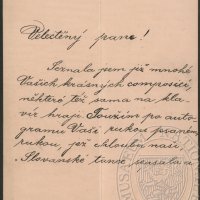 Veletěný pane!
Seznala jsem již mnohé
Vašich krásných composicí,
některé též sama na kla-
vír hraji. Toužím po auto-
gramu Vaší rukou psaném,
rukou, jež chloubu naši
Slovanské tance psala a